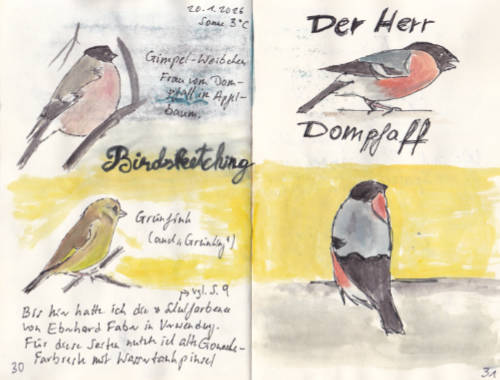 20.1.2026
Sonne 3°C
Gimpel-Weibchen
Frau vom Dom-
pfaff im Apfel-
baum.
Birdsketching
Grünfink
(auch "Grünling")
vgl. S. 9
Bis hier hatte ich die
von Eberhard Faber in Verwendung.
Für diese Seiten nutze ich alte Gouache-
Farbreste mit Wassertankpinsel
30
Der Herr
Dompfaff
31